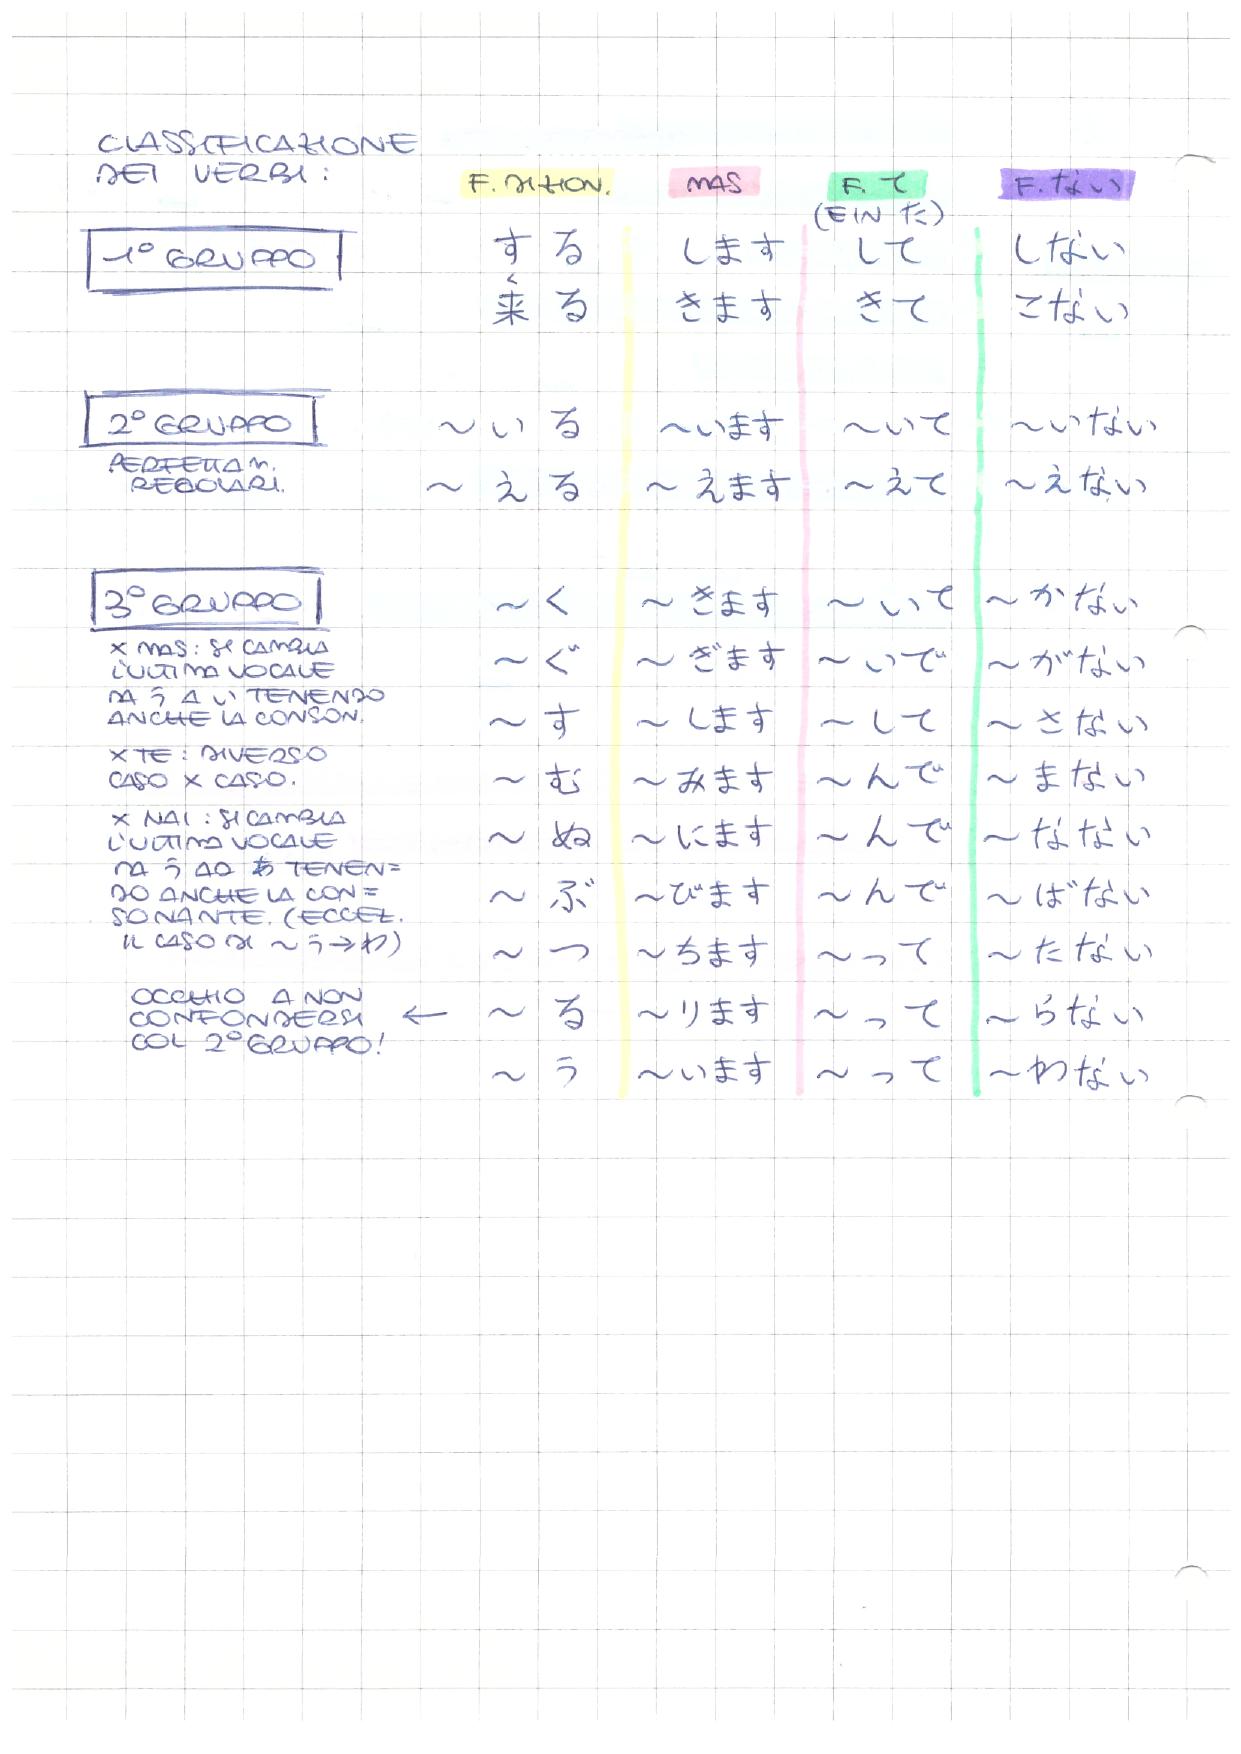 CLASSIFICAZIONE
DEI VERBI:
F. DIZION. MAS F. て F. ない
(E IN た)
1° GRUPPO する します して しない
く
来る きます きて こない
2° GRUPPO ~いる ~います ~いて ~いない
PERFETTAM.
REGOLARI. ~える ~えます ~えて ~えない
3° GRUPPO ~く ~きます ~いて ~かない
X MAS: SI CAMBIA
L'ULTIMA VOCALE ~ぐ ~ぎます ~いで ~がない
DA う A い TENENDO
ANCHE LA CONSON. ~す ~します ~して ~さない
X TE: DIVERSO
CASO X CASO. ~む ~みます ~んで ~まない
X NAI: SI CAMBIA
L'ULTIMA VOCALE ~ぬ ~にます ~んで ~なない
DA う AD あ TENEN=
DO ANCHE LA CON= ~ぶ ~びます ~んで ~ばない
SONANTE. (ECCEZ.
IL CASO DI ~う→わ) ~つ ~ちます ~って ~たない
OCCHIO A NON
CONFONDERSI ← ~る ~ります ~って ~らない
COL 2° GRUPPO!
~う ~います ~って ~わない